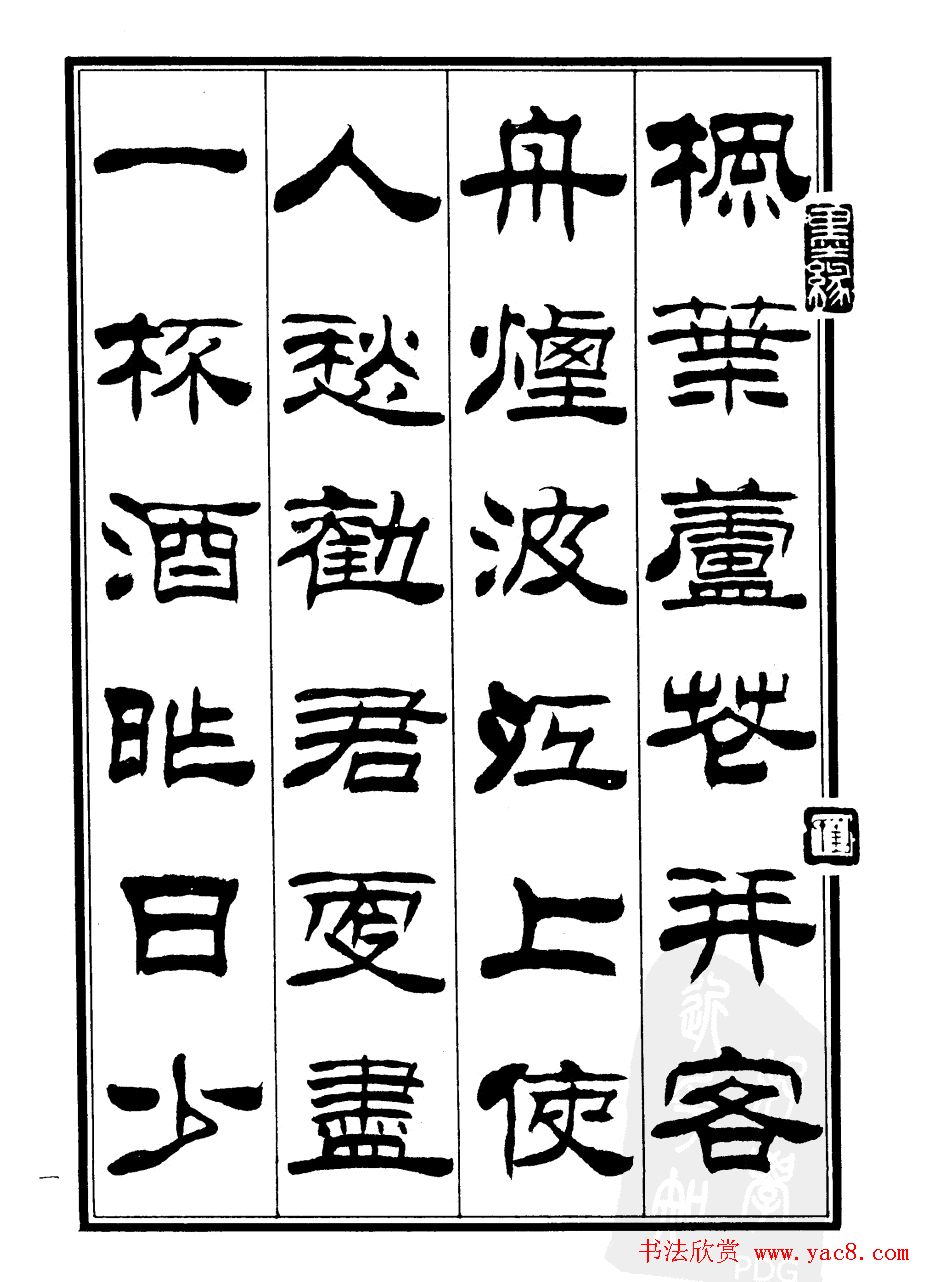 楓葉蘆花并客
舟煙波江上使
人愁勸君更盡
一杯酒昨日少
墨緣
一
书法欣赏 www.yac8.com
PDG